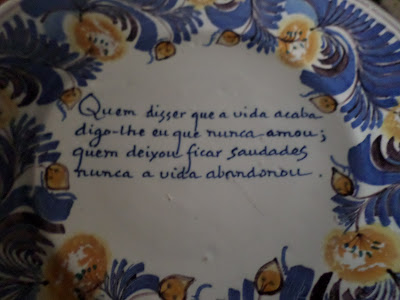 Quem disser que a vida acaba
digo-lhe eu que nunca amou;
quem deixou ficar saudades
nunca a vida abandonou.